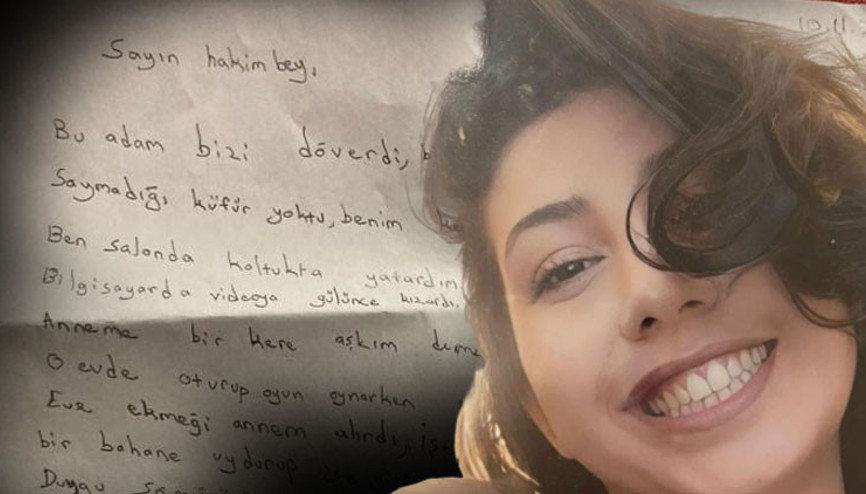 10.11.
Sayın hakim bey,
Bu adam bizi döverdi, b
Saymadığı küfür yoktu, benim ke
Ben salonda koltukta yatardım,
Bilgisayarda videoya gülünce kızardı.
Anneme bir kere aşkım deme
O evde oturup oyun oynarken
Eve ekmeği annem alırdı, işe
bir bahane uydurup